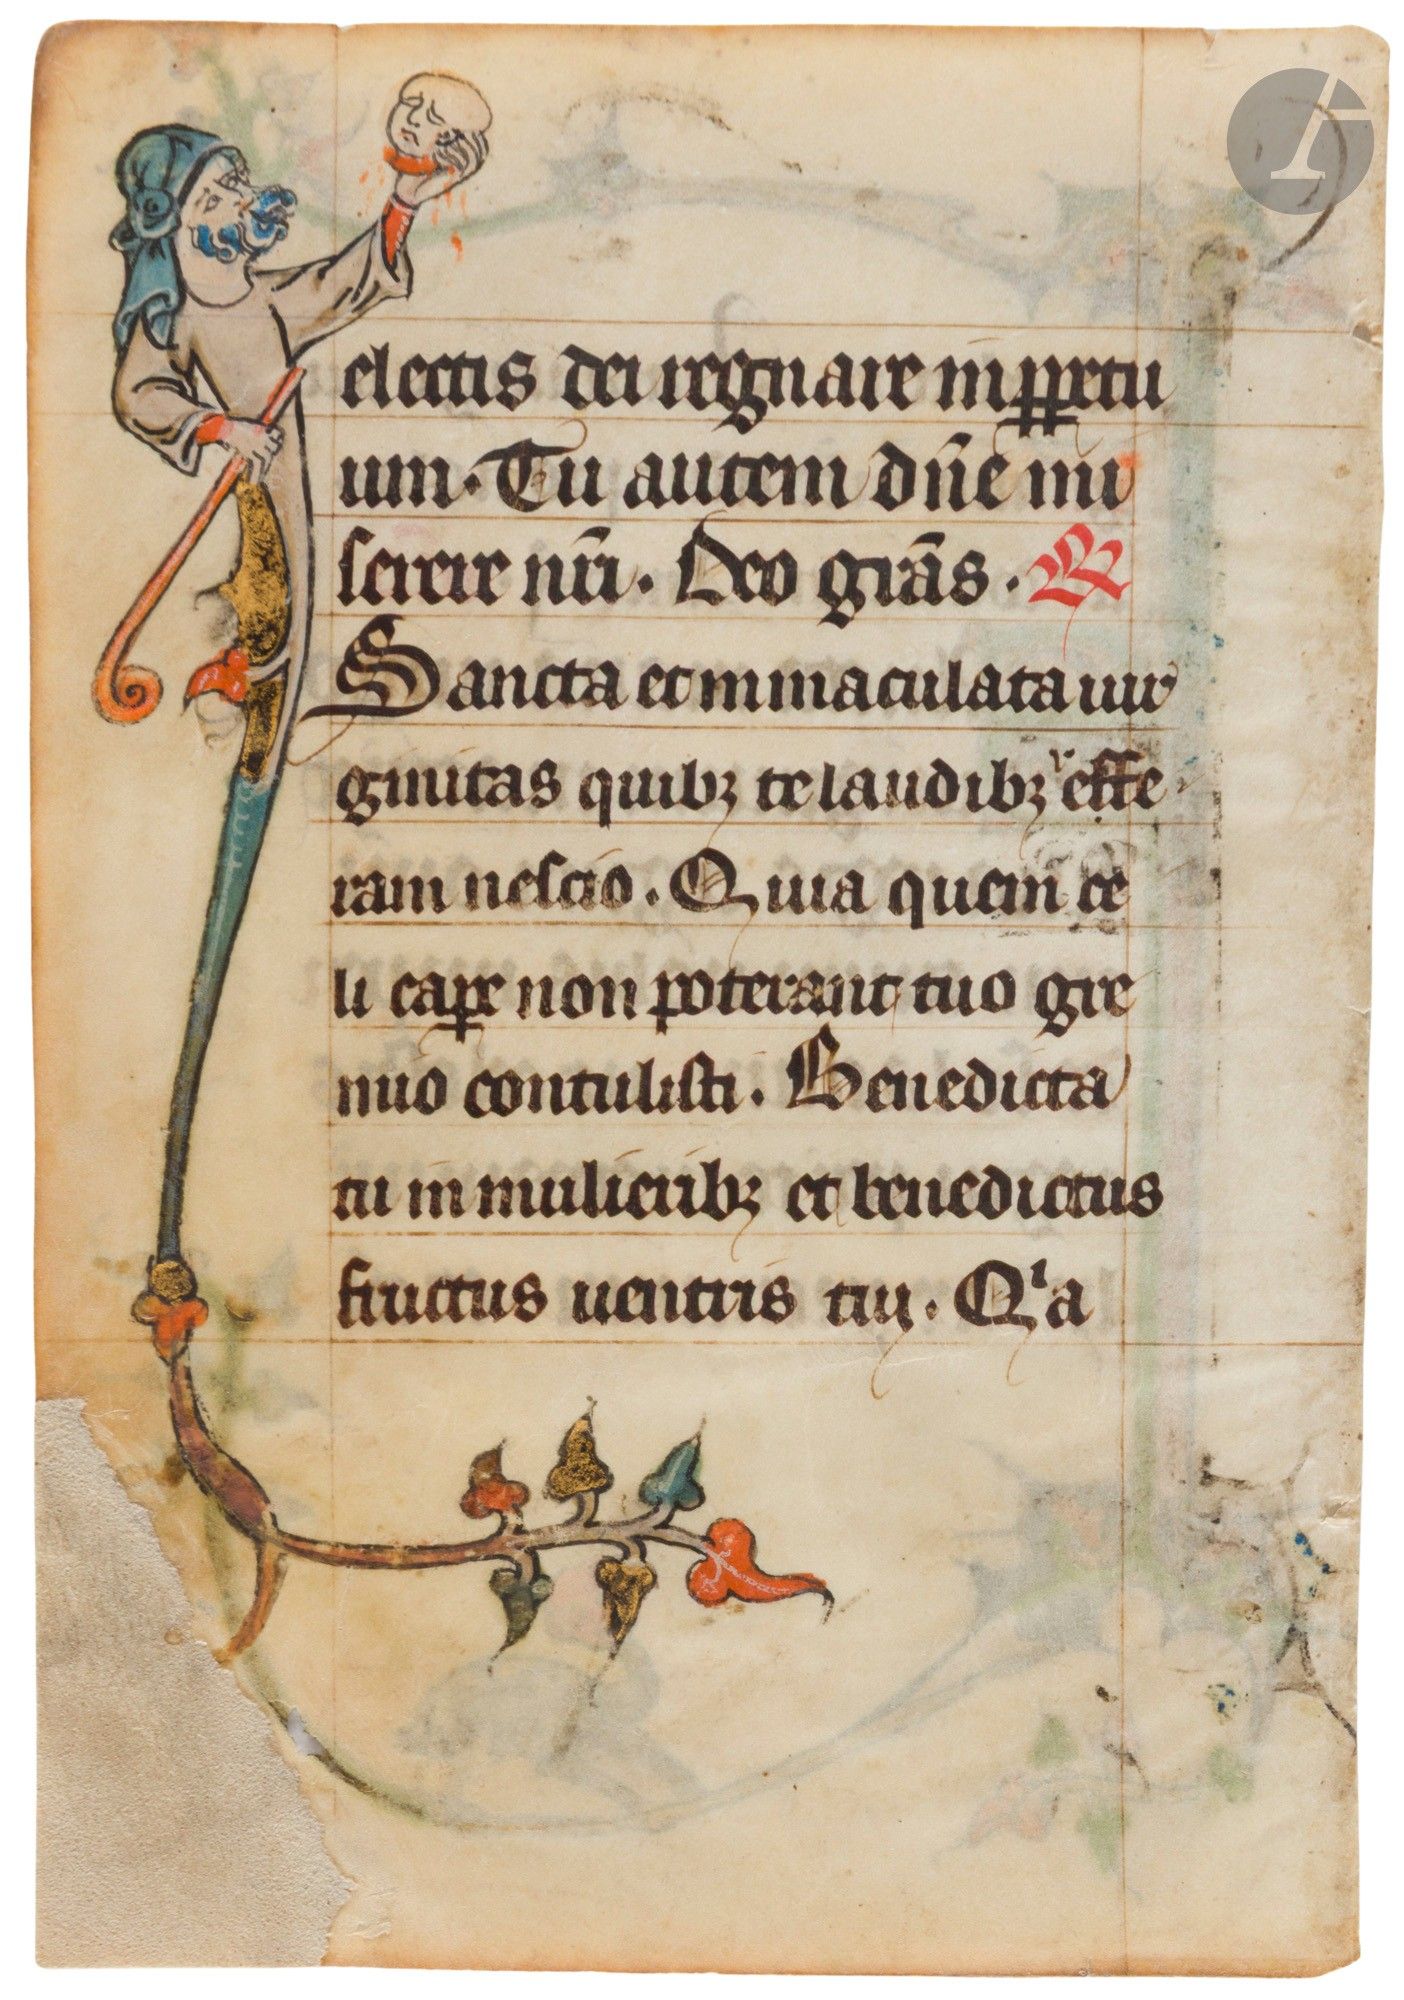 electis dei regnare in ꝑpetu
um. Tu autem dn̄e mi
serere nr̄i. Deo grās. ℟
Sancta et inmaculata uir
ginitas quibꝫ te laudibꝫ effe
ram nescio. Quia quem ce
li caꝑe non poterant tuo gre
mio contulisti. Benedicta
tu in mulieribꝫ et benedictus
fructus uentris tui. Qⁱa